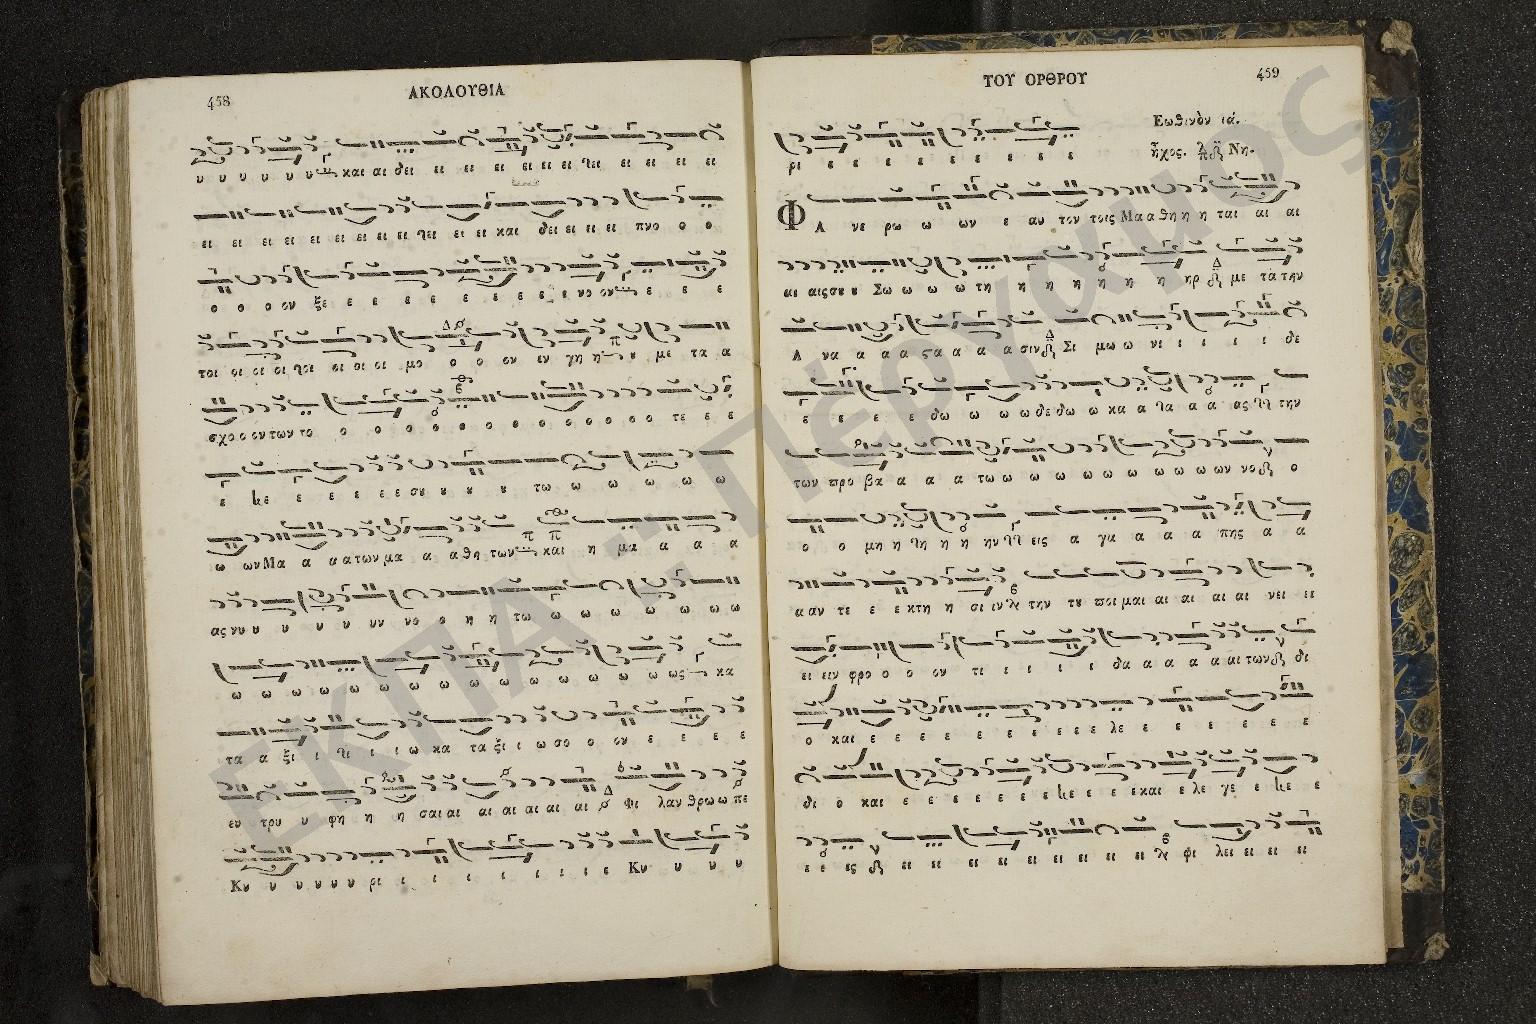 458
ΑΚΟΛΟΥΘΙΑ
υ υ υ υ υ υ και αι δει ει ει ει ει ει ει ει ει ει ει ει
ει ει ει ει ει ει ει ει ει ει ει και δει ει ει ει πνο ο ο
ο ο ο ον ξε ε ε ε ε ε ε ε ε ε νο ον ε ε ε
τοι οι οι οι οι οι οι μο ο ο ον εν γη η υ με τα α
σχο ο ον των το ο ο ο ο ο ο ο ο ο ο ο τε ε ε
ε ε ε ε ε ε σου υ υ υ τω ω ω ω ω ω
ω ων Μα α α α των μα α α θη των και η μα α α α
ας νυ υ υ υ υ υν νο ο η η τω ω ω ω ω ω ω
ω ω ω ω ω ω ω ω ω ω ω ω ω ω ως κα
τα α ξι ι ι ι ω κα τα ξι ι ω σο ο ον ε ε ε ε
ευ τρυ υ φη η η σαι αι αι αι αι αι αι Φι λαν θρω ω πε
Κυ υ υ υ υ υ ρι ι ι ι ι ι ι ε Κυ υ υ υ
459
ΤΟΥ ΟΡΘΡΟΥ
Εωθινὸν ιά.
ἦχος. Νη.
ρι ε ε ε ε ε ε ε ε
ΦΑ νε ρω ω ων ε αυ τον τοις Μα α θη η η ται αι αι
αι αις ου υ Σω ω ω ω τη η η η η η η ηρ με τα την
Α να α α α ςα α α α σιν Σι μω ω νι ι ι ι ι δε
ε ε ε ε δω ω ω ω δε δω ω κα α τα α α ας την
των προ βα α α α τω ω ω ω ω ω ω ω ω ων νο ο
ο ο μη η η η ην εις α γα α α α πης α α
α αν τε ε ε κτη η σι ιν την τυ ποι μαι αι αι αι αι νει ει
ει ειν φρο ο ο ον τι ι ι ι ι δα α α α α αι των δι
ο και ε ε ε ε ε ε ε ε ε ε λε ε ε ε ε ε ε
δι ο και ε ε ε ε ε ε ε ε ε ε και ε λε γε ε ε ε
ε ε ις ει ει ει ει ει ει ει ει ει φι λει ει ει ει
ΕΚΠΑ: Πέργαμος